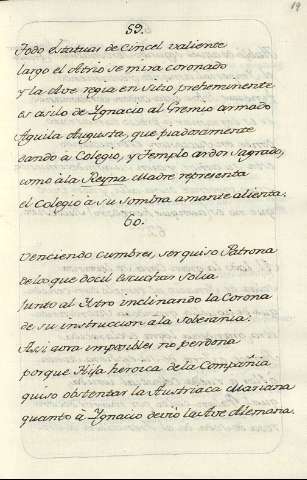 19
59.
Todo estatuas de cincel valiente
largo el Atrio se mira coronado
y la Ave regia en sitio preheminente
es asilo de Ygnacio al Gremio armado
Aguila Augusta, que piadosamente
dando à Colegio, y Templo ardor sagrado,
como à la Reyna Madre representa
el Colegio à su sombra amante alienta.
60.
Venciendo cumbres, ser quiso Patrona
de lo que docil escuchar solia
junto al Istro inclinando la Corona
de su instruccion à la soberania:
Assi aora imposibles no perdona
porque Hija heroica de la Compañia
quiso obstentar la Austriaca Mariana
quanto à Ygnacio deviò la Ave Alemana.